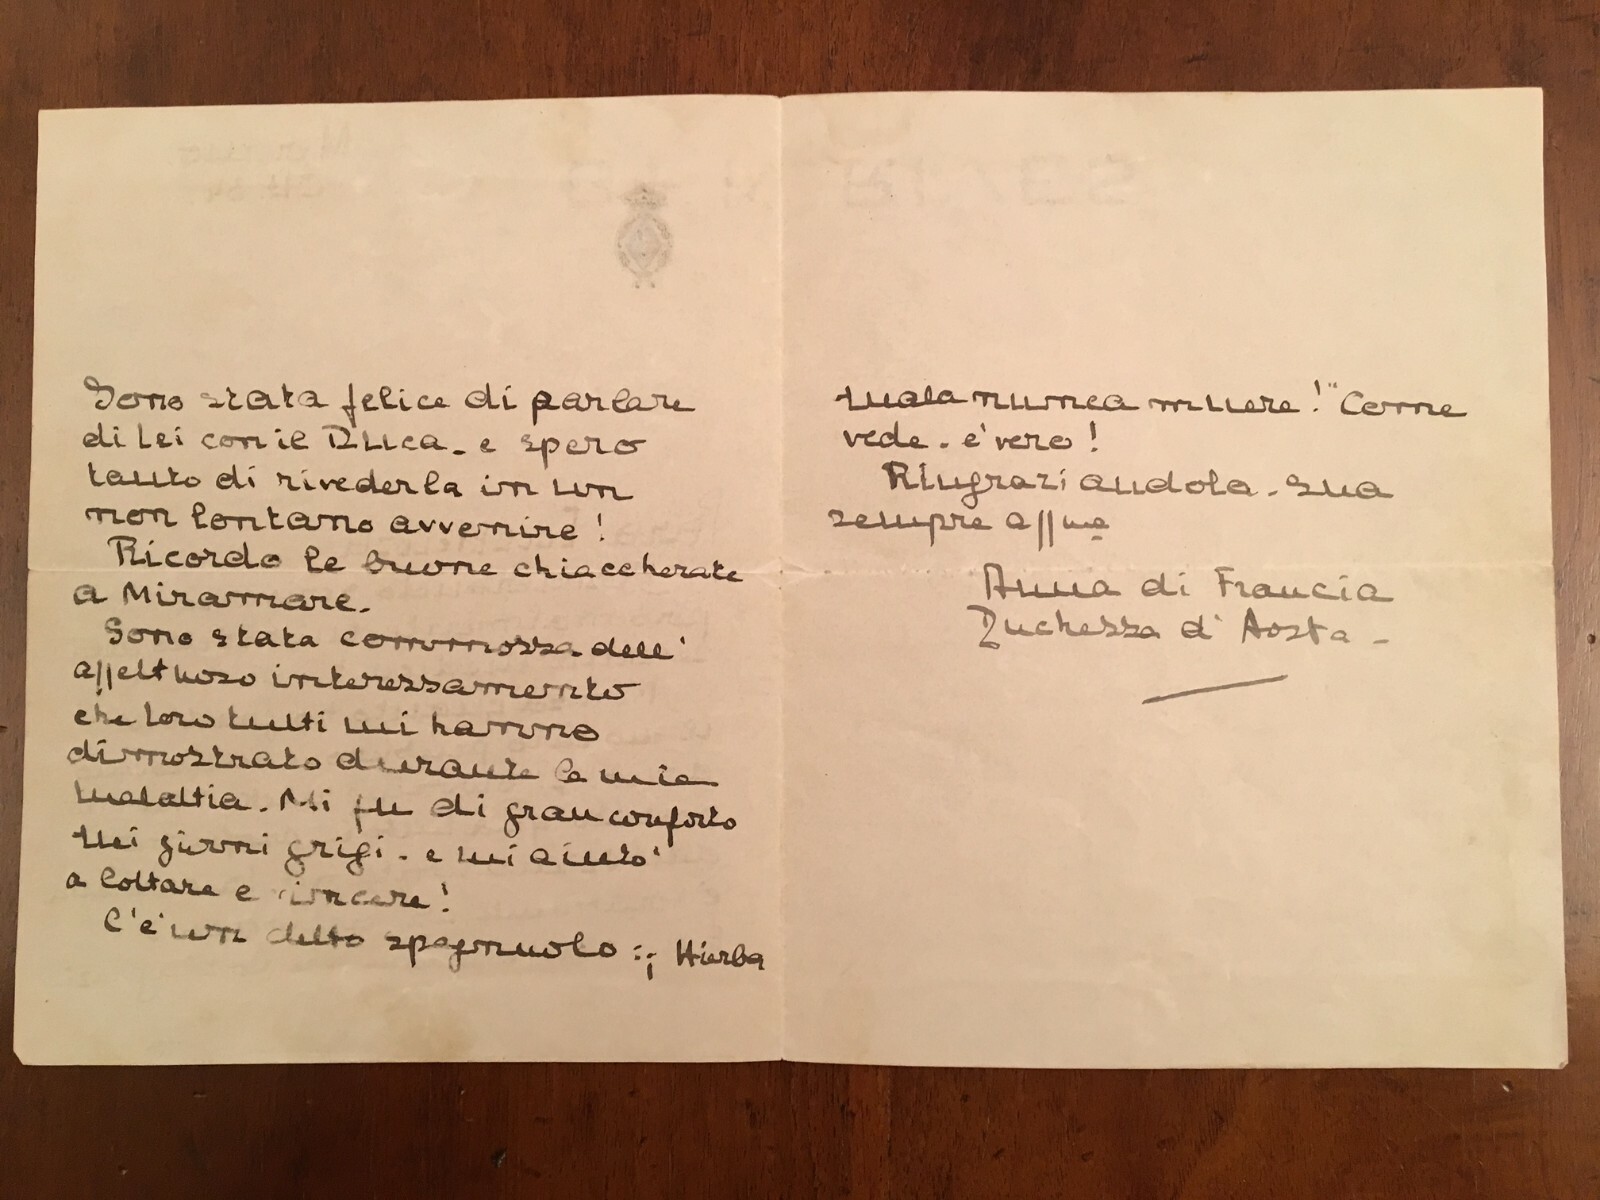 Sono stata felice di parlare
di lei con il Duca. e spero
tanto di rivederla in un
non lontano avvenire!
Ricordo le buone chiaccherate
a Miramare.
Sono stata commossa dell'
affettuoso interessamento
che loro tutti mi hanno
dimostrato durante la mia
malattia. Mi fu di gran conforto
nei giorni grigi. e mi aiutò
a lottare e vincere!
C'è un detto spagnuolo : ¡ Hierba
mala nunca muere!" Come
vede. è vero!
Ringraziandola. sua
sempre affma
Anna di Francia
Duchessa d'Aosta -